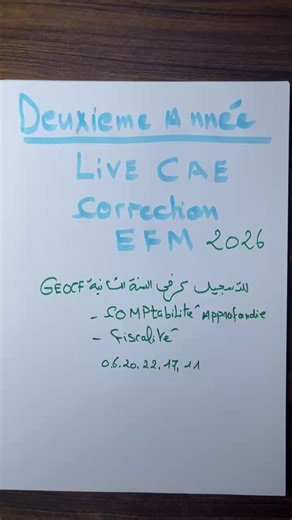 Deuxieme Année
Live CAE
Correction
EFM 2026
للتسجيل في السنة الثانية GEOCF
- COMPtabilité Approfondie
- Fiscalité
06.20.22.17.11